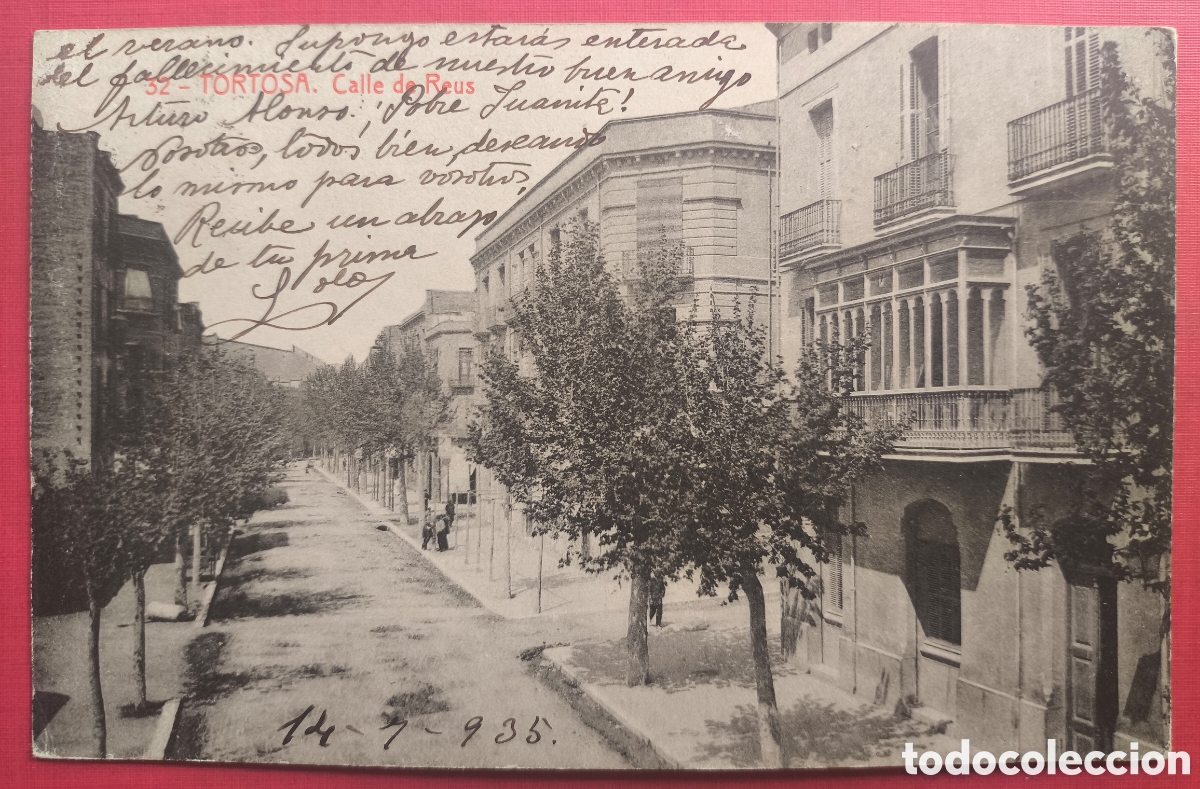 el verano. Supongo estarás enterada
del fallecimiento de nuestro buen amigo
32 - TORTOSA. Calle de Reus
Arturo Alonso. ¡Pobre Juanita!
Nosotros, todos bien, deseando
lo mismo para vosotros,
Recibe un abrazo
de tu prima
Sole
14-7-935.
todocoleccion